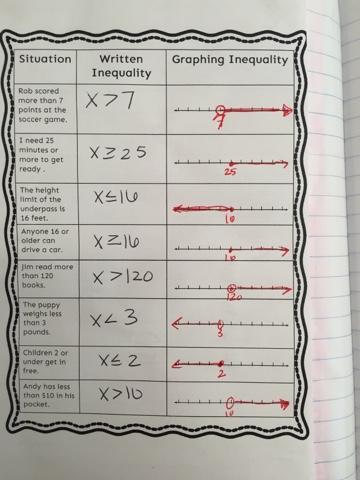 Situation
Written
Inequality
Graphing Inequality
Rob scored
more than 7
points at the
soccer game.
x>7
7
I need 25
minutes or
more to get
ready .
x≥25
25
The height
limit of the
underpass is
16 feet.
x≤16
16
Anyone 16 or
older can
drive a car.
x≥16
16
Jim read more
than 120
books.
x>120
120
The puppy
weighs less
than 3
pounds.
x<3
3
Children 2 or
under get in
free.
x≤2
2
Andy has less
than $10 in his
pocket.
x>10
10